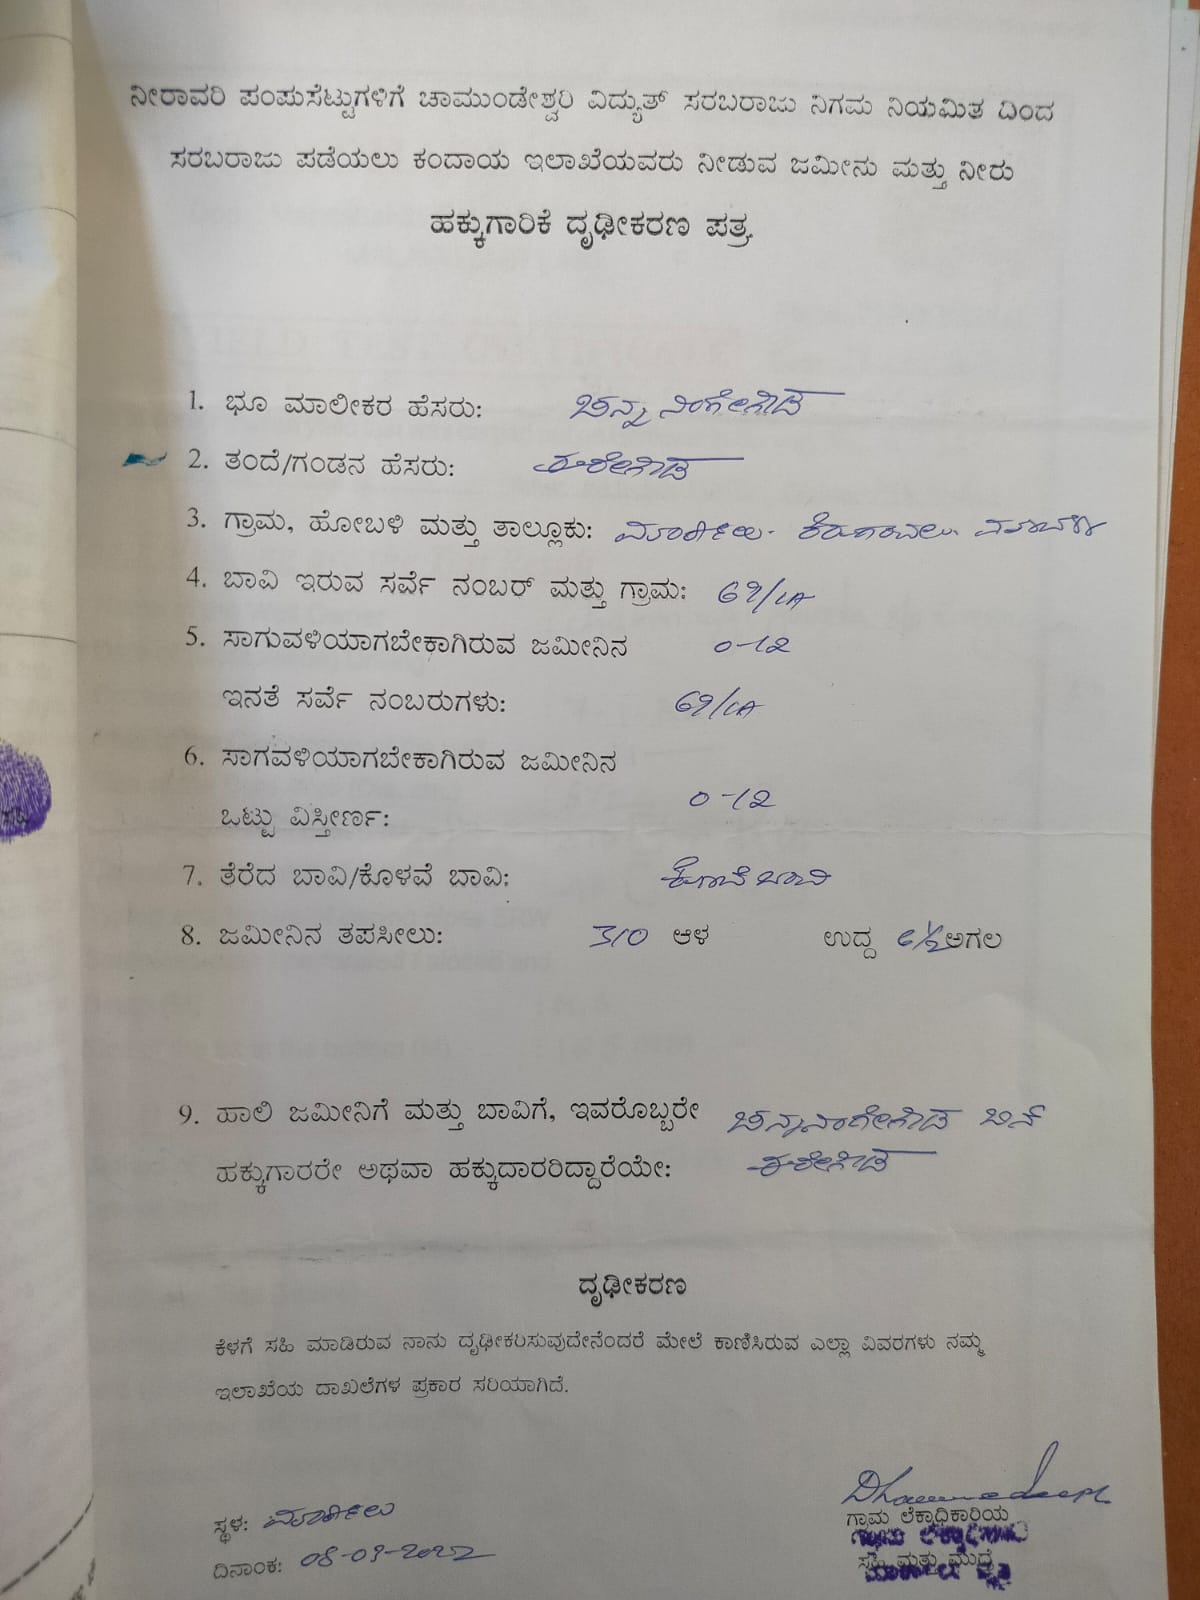 ನೀರಾವರಿ ಪಂಪುಸೆಟ್ಟುಗಳಿಗೆ ಚಾಮುಂಡೇಶ್ವರಿ ವಿದ್ಯುತ್ ಸರಬರಾಜು ನಿಗಮ ನಿಯಮಿತ ದಿಂದ
ಸರಬರಾಜು ಪಡೆಯಲು ಕಂದಾಯ ಇಲಾಖೆಯವರು ನೀಡುವ ಜಮೀನು ಮತ್ತು ನೀರು
ಹಕ್ಕುಗಾರಿಕೆ ದೃಢೀಕರಣ ಪತ್ರ
1. ಭೂ ಮಾಲೀಕರ ಹೆಸರು: ಚನ್ನ
2. ತಂದೆ/ಗಂಡನ ಹೆಸರು:
3. ಗ್ರಾಮ, ಹೋಬಳಿ ಮತ್ತು ತಾಲ್ಲೂಕು:
4. ಬಾವಿ ಇರುವ ಸರ್ವೆ ನಂಬರ್ ಮತ್ತು ಗ್ರಾಮ: 69/1A
5. ಸಾಗುವಳಿಯಾಗಬೇಕಾಗಿರುವ ಜಮೀನಿನ 0-12
ಇನತೆ ಸರ್ವೆ ನಂಬರುಗಳು: 69/1A
6. ಸಾಗವಳಿಯಾಗಬೇಕಾಗಿರುವ ಜಮೀನಿನ
ಒಟ್ಟು ವಿಸ್ತೀರ್ಣ: 0-12
7. ತೆರೆದ ಬಾವಿ/ಕೊಳವೆ ಬಾವಿ: ಕೊಳವೆ ಬಾವಿ
8. ಜಮೀನಿನ ತಪಸೀಲು: 310 ಆಳ ಉದ್ದ 6½ ಅಗಲ
9. ಹಾಲಿ ಜಮೀನಿಗೆ ಮತ್ತು ಬಾವಿಗೆ, ಇವರೊಬ್ಬರೇ ಬಿನ್
ಹಕ್ಕುಗಾರರೇ ಅಥವಾ ಹಕ್ಕುದಾರರಿದ್ದಾರೆಯೇ:
ದೃಢೀಕರಣ
ಕೆಳಗೆ ಸಹಿ ಮಾಡಿರುವ ನಾನು ದೃಢೀಕರಿಸುವುದೇನೆಂದರೆ ಮೇಲೆ ಕಾಣಿಸಿರುವ ಎಲ್ಲಾ ವಿವರಗಳು ನಮ್ಮ
ಇಲಾಖೆಯ ದಾಖಲೆಗಳ ಪ್ರಕಾರ ಸರಿಯಾಗಿದೆ.
ಗ್ರಾಮ ಲೆಕ್ಕಾಧಿಕಾರಿಯ
ಸ್ಥಳ:
ಸಹಿ ಮತ್ತು ಮುದ್ರೆ
ದಿನಾಂಕ: 08-09-2022